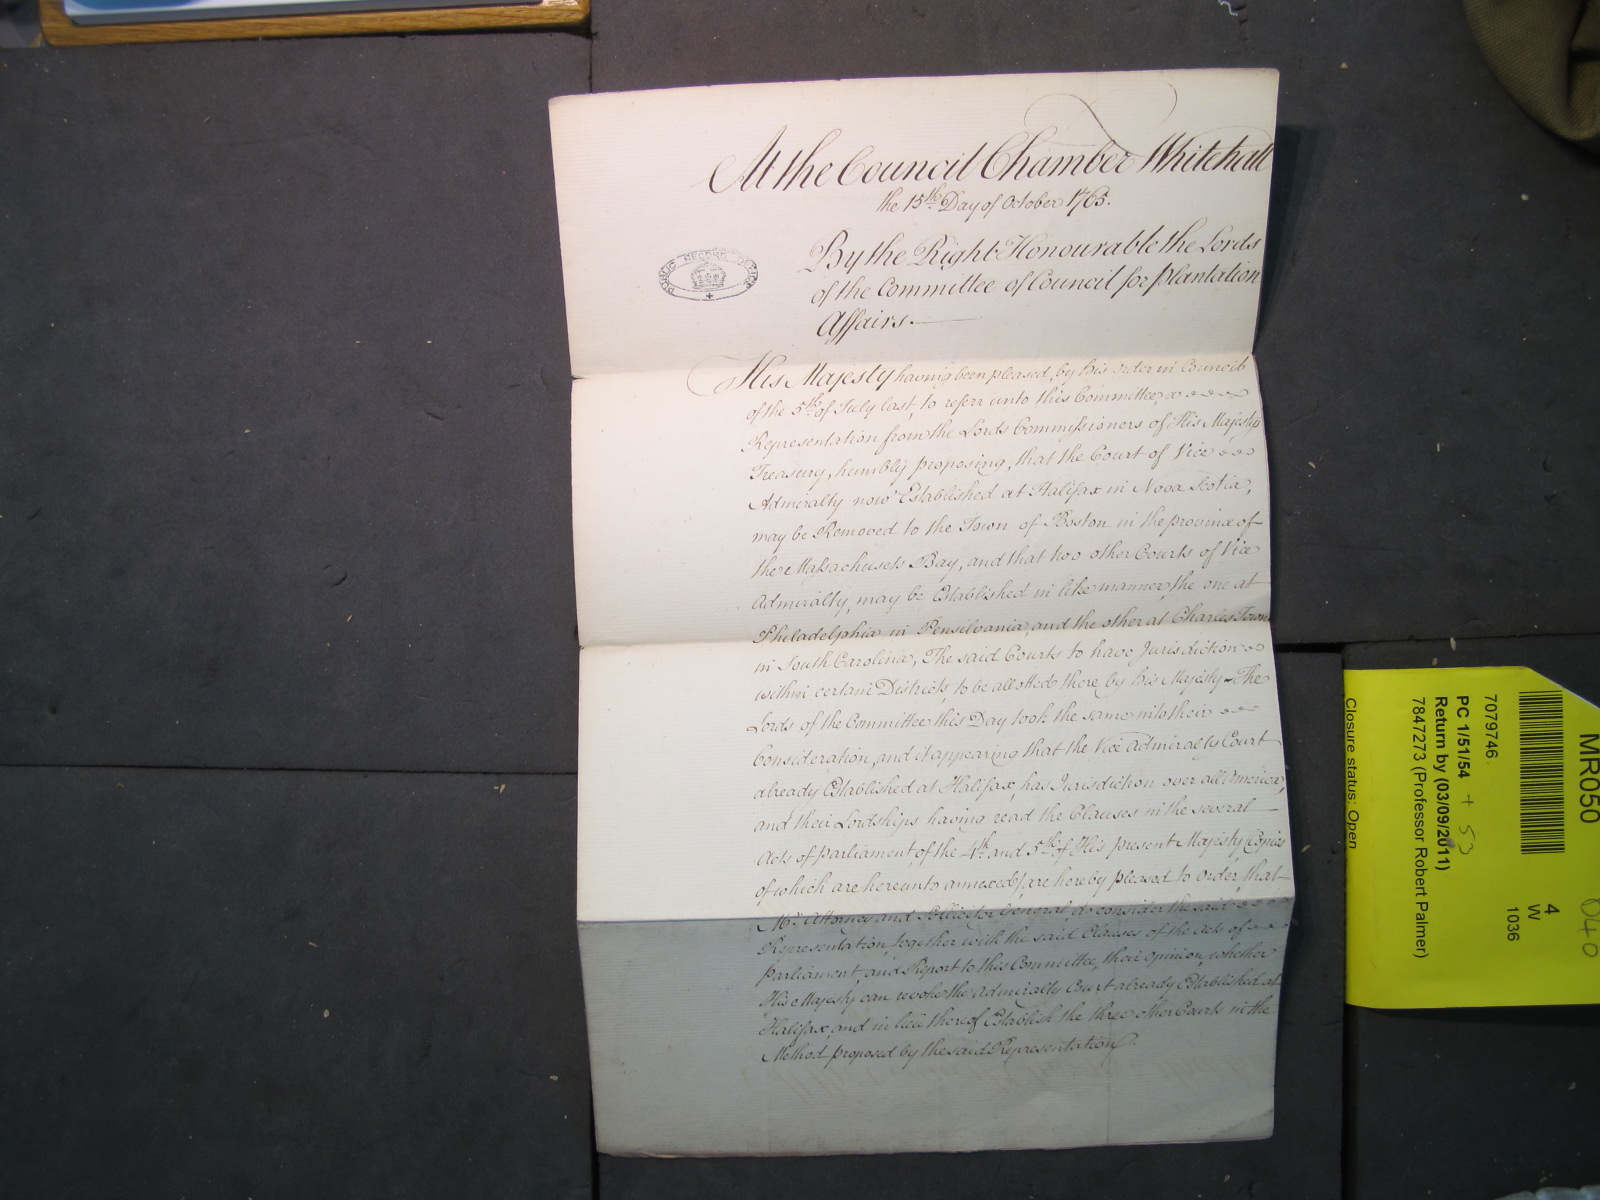 At the Council Chamber Whitehall
the 15th Day of October 1765.
PUBLIC RECORD OFFICE
By the Right Honourable the Lords
of the Committee of Council for plantation
Affairs.
His Majesty having been pleased, by his order in Council
of the 5th of July last, to referr unto this Committee, a
Representation from the Lords Commissioners of His Majestys
Treasury, humbly proposing, that the Court of Vice
Admiralty now Established at Halifax in Nova Scotia,
may be Removed to the Town of Boston in the province of
the Massachusets Bay, and that two other Courts of Vice
Admiralty, may be Established in like manner, the one at
Philadelphia in Pensilvania, and the other at Charles Town
in South Carolina, The said Courts to have Jurisdiction
within certain Districts, to be allotted there by his Majesty - The
Lords of the Committee this Day took the same into their
Consideration, and it appearing that the Vice Admiralty Court
already Established at Halifax, has Jurisdiction over all America,
and their Lordships having read the Clauses in the several
Acts of Parliament, of the 4th and 5th of His present Majesty (Copies
of which are hereunto annexed) are hereby pleased to order, that
Mr. Attorney and Sollicitor General, do consider the said
Representation, together with the said Clauses of the Acts of
parliament, and Report to this Committee, their opinion, whether
His Majesty can revoke the Admiralty Court already Established at
Halifax, and in lieu thereof Establish the three other Courts in the
Method proposed by the said Representation.
MR050
040
4
W
1036
7079746
PC 1/51/54 + 53
Return by (03/09/2011)
7847273 (Professor Robert Palmer)
Closure status: Open